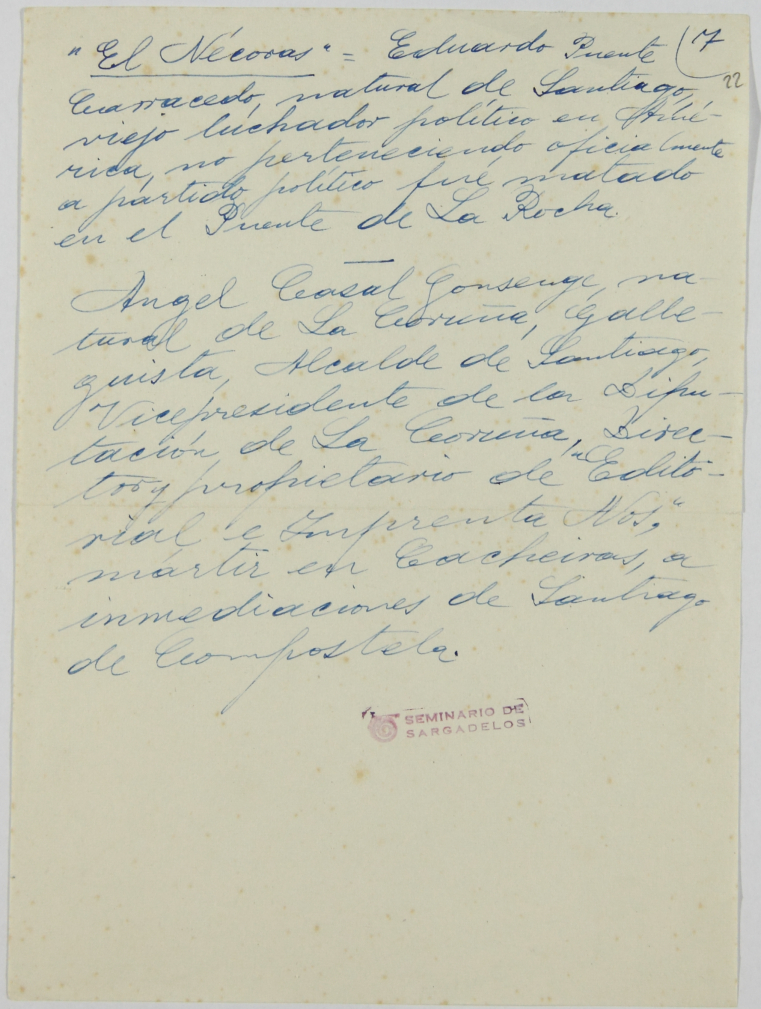 "El Nécoras" = Eduardo Puente (7
22
Carracedo, natural de Santiago,
viejo luchador político en Amé-
rica, no perteneciendo oficialmente
a partido político fué matado
en el Puente de La Rocha.
Angel Casal Gonsenge, na-
tural de La Coruña, Galle-
guista, Alcalde de Santiago,
Vicepresidente de la Dipu-
tación de La Coruña, Direc-
tor y propietario de "Edito-
rial e Imprenta Nós",
mártir en Cacheiras, a
inmediaciones de Santiago
de Compostela.
SEMINARIO DE
SARGADELOS